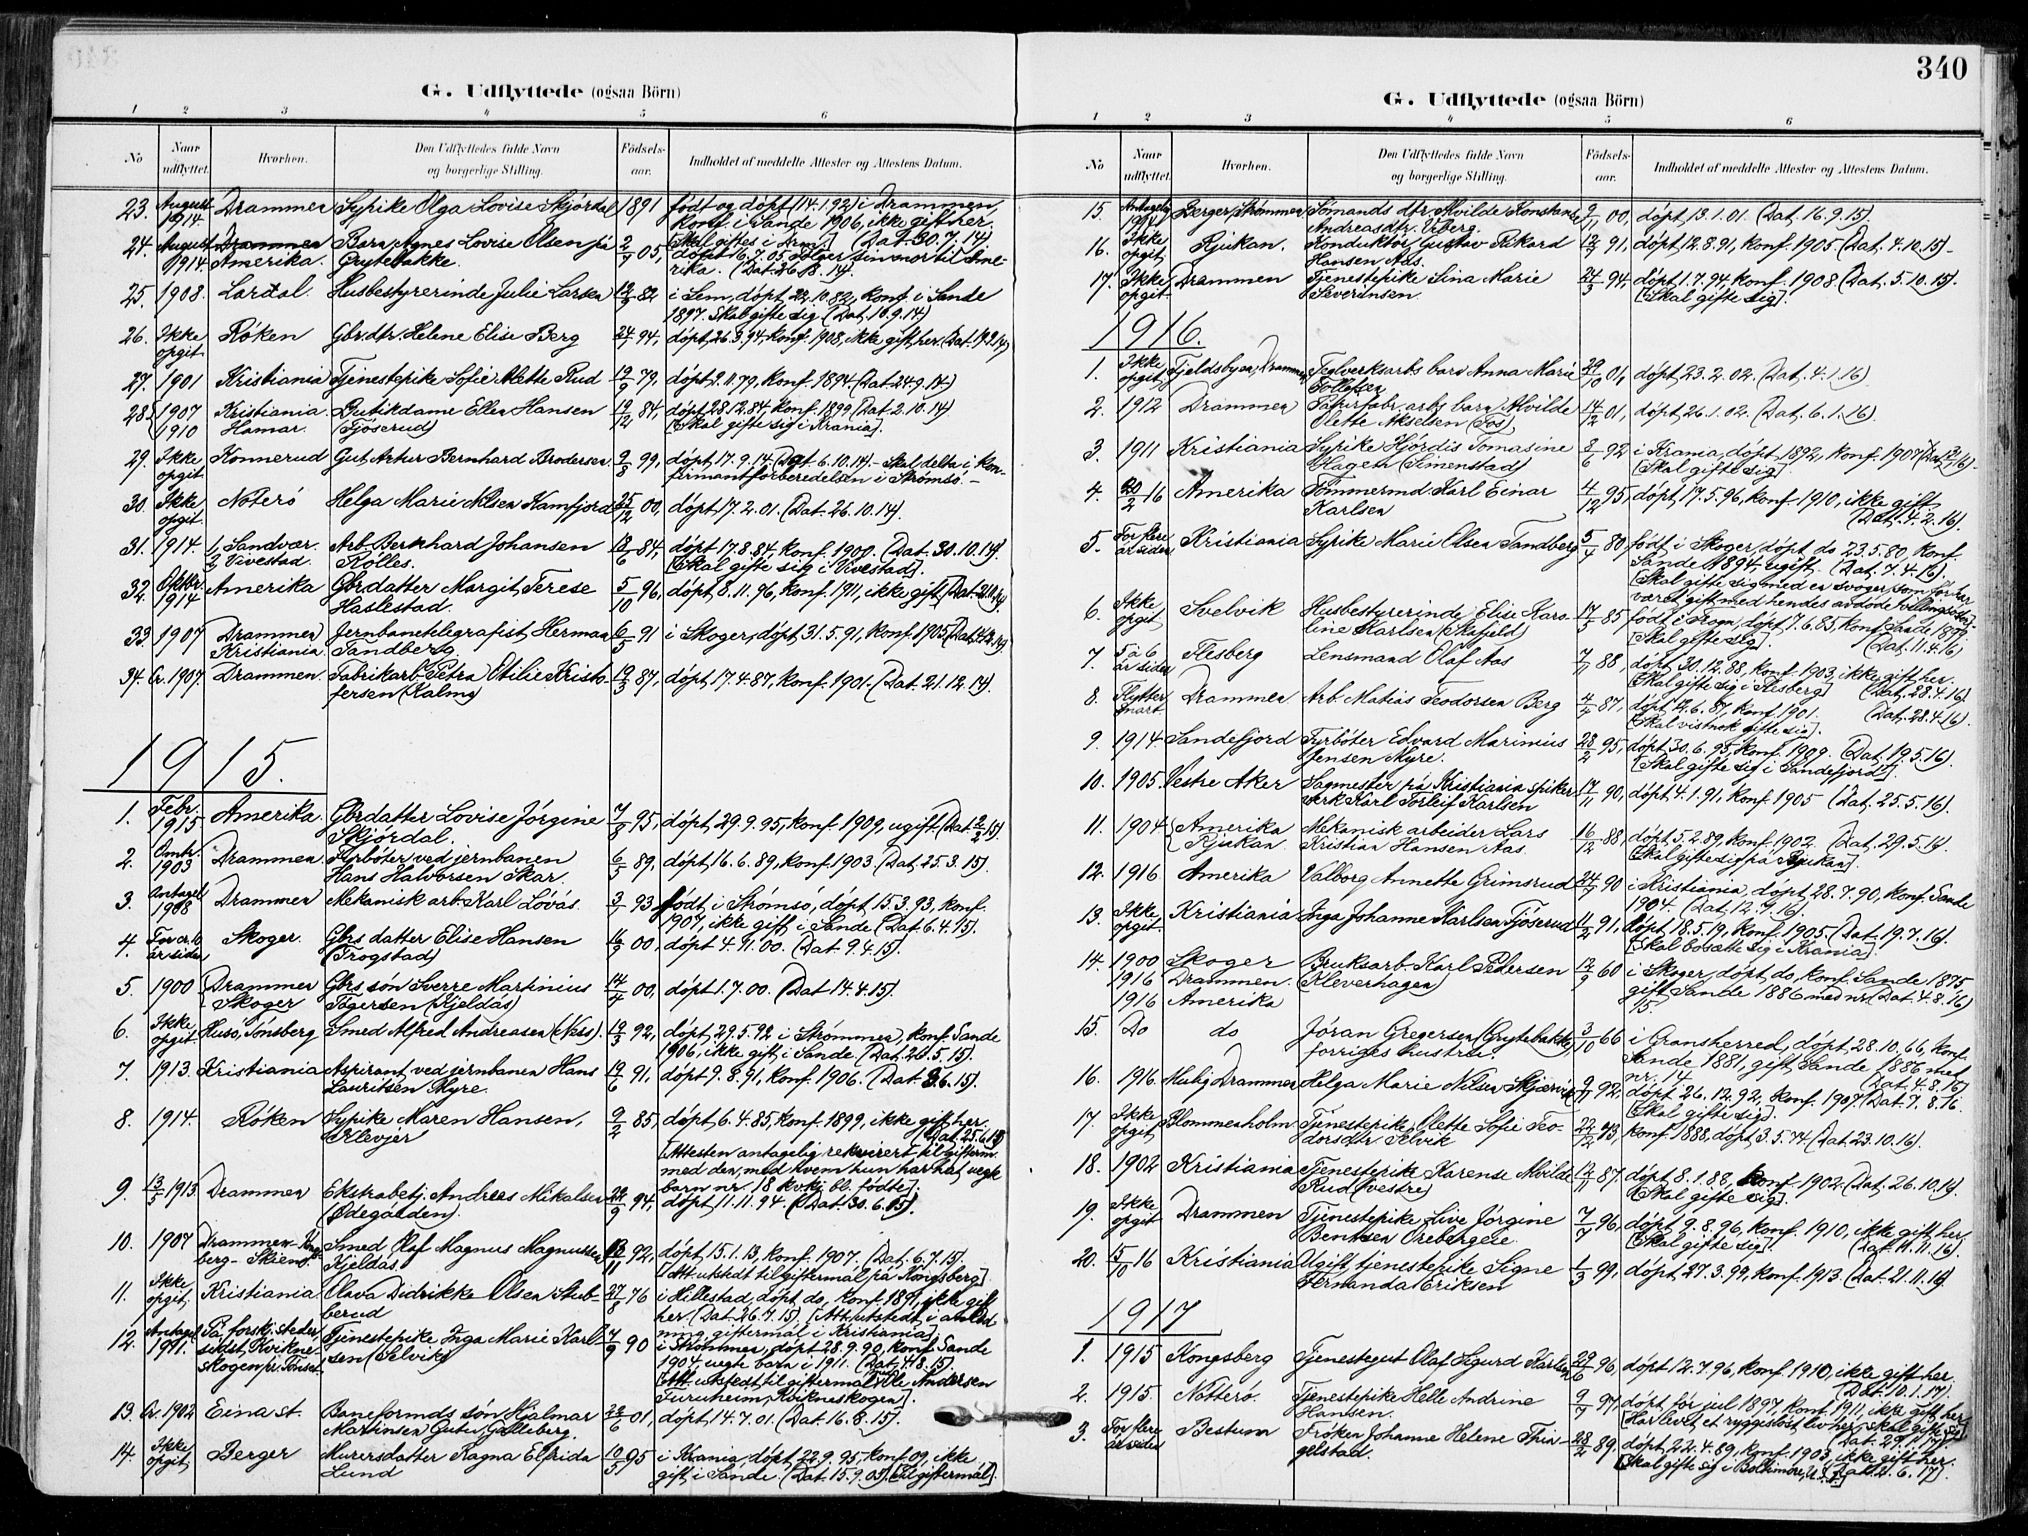 G. Udflyttede (ogsaa Börn)
1 2 3 4 5 6
No
Naar udflyttet.
Hvorhen.
Den Udflyttedes fulde Navn og borgerlige Stilling.
Födsels- aar.
Indholdet af meddelte Attester og Attestens Datum.
23. August 1914. Drammen Sypike Olga Lovise Skjórdal 1891 födt og döpt (14.1.92) i Drammen,
konf. i Sande 1906, ikke gift her,
[Skal giftes i Drm.] (Dat. 30.7.14)
24. August 1914. Amerika. Barn Agnes Lovise Olsen på Grytebakke. 05, döpt 16.7.05, fölger sin mor til Ame-
rika. (Dat. 26.8.14.
25. 1908. Lardal. Husbestyrerinde Julie Larsen 82 i Sem, döpt 22.10.82, konf. i Sande
1897. Skal gifte sig (Dat. 10.9.14)
26. Ikke opgit Röken Gbr.dtr. Helene Elise Berg 24/2 94, döpt 26.3.94, konf. 1908, ikke gift her.
27. 1901 Kristiania Tjenestepike Sofie Alette Rud 79, döpt 2.11.79, konf. 1894 (Dat. 24.9.14)
28. 1907 Kristiania. Butikdame Ellen Hansen 19/12 84, döpt 28.12.84, konf. 1899, (Dat. 2.10.14)
1910 Hamar. (Fjöserud) [Skal gifte sig i Krania].
29. Ikke opgit Konnerud Gut Artur Bernhard Brodersen. 99, döpt 17.9.14. (Dat. 6.10.14). - Skal delta i kon-
firmantforberedelsen i Strömsö. -
30. Ikke opgit. Nöterö Helga Marie Nilsen Kamfjord 25/12 00, döpt 17.2.01. (Dat. 26.10.14).
31. 1914. 1, Sandvær. Arb. Bernhard Johansen 84, döpt 17.8.84, konf. 1900. (Dat. 30.10.14)
2, Vivestad. Kölles. [Skal gifte sig i Vivestad].
32. Oktbr. 1914 Amerika Gbrdatter Margit Terese 5/10 96, döpt 8.11.96, konf. 1911, ikke gift
Haslestad.
33. 1907 Drammen Jernbanetelegrafist Herman 6/5 91 i Skoger, döpt 31.5.91, konf. 1905
Kristiania Sandberg.
34. Cr. 1907. Drammen. Fabrikarb. Petra Otilie Kristo- 19/3 87, döpt 17.4.87, konf. 1901. (Dat. 21.12.14).
fersen (Kalmy)
1915.
1. Febr. 1915 Amerika. Gbrdatter Lovise Jörgine 95, döpt 29.9.95, konf. 1909, ugift
Skjórdal.
2. Omtr. 1903 Drammen. Fyrböter ved jernbanen 6/5 89, döpt 16.6.89, konf. 1903. (Dat. 25.3.15).
Hans Halvorsen Skar.
3. Antagel 1908 Drammen Mekanisk arb. Karl Lövås. 93 födt i Strömsö, döpt 15.3.93, konf.
1907, ikke gift i Sande (Dat. 6.4.15).
4. For cr. 10 år siden, Skoger. Gbrs datter Elise Hansen 00, döpt 4.11.00. (Dat. 9.4.15).
(Frogstad)
5. 1900 Drammen Gbrs sön Sverre Martinius 14/4 00, döpt 1.7.00. (Dat 14.4.15).
Skoger Tögersen (Kjeldås)
6. Ikke opgit Husö, Tönsberg Smed Alfred Andreasen (Ness). 19/3 92, döpt 29.5.92 i Strömmen, konf. Sande
1906, ikke gift i Sande. (Dat. 26.5.15).
7. 1913. Kristiania Aspirant ved jernbanen Hans 19/6 91, döpt 9.8.91, konf. 1906. (Dat. 3.6.15).
Lauritsen Myre.
8. 1914. Röken Sypike Maren Hansen, 9/2 85, döpt 6.4.85, konf. 1899, ikke gift her.
Klevjer (Dat. 25.6.15)
[Attesten antagelig rekvirert til gifterm.
med den, med hvem hun har hat uegte
barn nr. 18 kvkj bl. födte].
9. 1913. Drammen Ekstrabetj. Andreas Mikalsen 94, döpt 11.11.94. (Dat. 30.6.15).
(Ödegården).
10. 1907 Drammen - Kongs- Smed Olaf Magnus Magnussen 92, döpt 15.1.13, konf. 1907. (Dat. 6.7.15).
berg - Skiens. Kjeldås. [Att. utstedt til giftermål på Kongsberg]
11. Ikke opgit. Kristiania Olava Didrikke Olsen Stub- 27/8 76 i Hillestad, döpt do, konf. 1891, ikke gift
berud her. (Dat. 26.7.15). [Att. utstedt i anled
ning giftermål i Kristiania]
12. Antagel 1911. På forskj. steder, Tjenestepike Inga Marie Karl- 7/9 90 i Strömmen, döpt 28.9.90, konf. Sande
sidst Kvikne- sen (Selvik) 1904, uegte barn i 1911. (Dat. 4.8.15).
skogen pr. Tönset. [Att. utstedt til giftermål med Ole Andersen
Furuheim, Kvikneskogen].
13. Cr. 1902 Eina st. Baneformds sön Hjalmar 23/6 01, döpt 14.7.01. (Dat. 16.8.15).
Martinsen Guten, Galleberg.
14. Ikke opgit Berger Murersdatter Ragna Elfrida 95 i Krania, döpt 22.9.95, konf. 09, ikke
Lund gift i Sande (Dat. 15.9.05) [Til giftermål].
340
G. Udflyttede (ogsaa Börn)
1 2 3 4 5 6
No
Naar udflyttet.
Hvorhen.
Den Udflyttedes fulde Navn og borgerlige Stilling.
Födsels- aar.
Indholdet af meddelte Attester og Attestens Datum.
15. Antagelig 1914 Berger, Strömmen Sömands dtr. Alvilde Konstanse 00, döpt 13.1.01. (Dat. 16.9.15).
Andreasdtr. Erberg.
16. Ikke opgit Rjukan. Konduktör Gustav Rikard 91, döpt 12.8.91, konf. 1905 (Dat. 4.10.15) -
Hansen Aas.
17. Ikke opgit Drammen Tjenestepike Lina Marie 24/3 94, döpt 1.7.94, konf. 1908 (Dat. 5.10.15).
Severinsen. [Skal gifte sig].
1916.
1. Ikke opgit Fjeldsbyen, Drammen Teglverksarbs barn Anna Marie 29/10 01, döpt 23.2.02. (Dat. 4.1.16).
Tollefsen
2. 1912 Drammen Papirfabr. arbs barn Alvilde 14/12 01, döpt 26.1.02. (Dat. 6.1.16).
Olette Akselsen (Fos)
3. 1911 Kristiania Sypike Hjördis Tomasine 8/6 92 i Krania, döpt 1892, konf. 1907
Hagen (Simenstad) [Skal gifte sig].
4. 20/2 16 Amerika Tömmermd. Karl Einar 4/12 95, döpt 17.5.96, konf. 1910, ikke gift.
Karlsen (Dat. 4.2.16).
5. For flere år siden Kristiania Sypike Marie Olsen Sandberg 5/4 80, födt i Skoger, döpt do 23.5.80, konf.
Sande 1894, ugift. (Dat. 7.4.16).
[Skal gifte sig med en svoger, som för har
været gift med hendes avdöde tvillingsöster]
6. Ikke opgit Svelvik Husbestyrerinde Elise Karo- 17/5 85 födt i Krom, döpt 7.6.85, konf. Sande 1899
line Karlsen (Skafjeld) [Skal gifte sig]. (Dat. 11.4.16)
7. 5 à 6 år siden Flesberg Lensmand Olaf Aas 88, döpt 30.12.88, konf. 1903, ikke gift her.
[Skal gifte sig i Flesberg] (Dat. 28.4.16).
8. Flytter snart. Drammen Arb. Matias Teodorsen Berg 4/4 87, döpt 12.6.87, konf. 1901. (Dat. 28.4.16).
[Skal vistnok gifte sig].
9. 1914 Sandefjord Fyrböter Edvard Marinius 28/2 95, döpt 30.6.95, konf. 1909. (Dat. 19.5.16).
Jensen Myre. [Skal gifte sig i Sandefjord].
10. 1905. Vestre Aker Sagmester på Kristiania spiker 17/11 90, döpt 4.1.91, konf. 1905 (Dat. 25.5.16).
verk Karl Torleif Karlsen
11. 1904 Amerika Mekanisk arbeider Lars 16/12 88, döpt 5.2.89, konf. 1902. (Dat. 29.5.14.
Rjukan. Kristian Hansen Aas. [Skal gifte sig på Rjukan].
12. 1916 Amerika Valborg Annette Grimsrud 90 i Kristiania, döpt 28.7.90, konf. Sande
1904. (Dat. 12.7.16).
13. Ikke opgit. Kristiania Inga Johanne Karlsen Fjöserud 91, döpt 18.5.19, konf. 1905 (Dat. 19.7.16).
[Skal bosætte sig i Krania].
14. 1900 Skoger Bruksarb. Karl Pedersen 60 i Skoger, döpt do, konf. Sande 1875
1916 Drammen. (Kleverhagen) gift Sande 1886 med nr. (Dat. 4.8.16)
1916 Amerika 15.
15. Do do Jóran Gregersen (Grytebakke) 3/10 66 i Gransherred, döpt 28.10.66, konf.
forriges hustru. Sande 1881, gift Sande 1886 med
nr. 14. (Dat. 4.8.16)
16. 1916. Mulig Drammen Helga Marie Nilsen Skjærvik 92, döpt 26.12.92, konf. 1907 (Dat. 7.8.16.
[Skal gifte sig].
17. Ikke opgit Blommenholm Tjenestepike Olette Sofie Teo- 73, konf. 1888, döpt 3.5.74 (Dat. 23.10.16).
dorsdtr. Selvik
18. 1902 Kristiania Tjenestepike Karense Alvilde 12/11 87. döpt 8.1.88, konf. 1902. (Dat. 26.10.16).
Rud (vestre) [Skal gifte sig].
19. Ikke opgit Drammen Tjenestepike Live Jörgine 7/7 96, döpt 9.8.96, konf. 1910, ikke gift her.
Bentsen Orebergeie. [Skal gifte sig]. (Dat. 11.11.16).
20. 15/10 16 Kristiania Ugift tjenestepike Signe 1/3 99, döpt 27.3.99, konf. 1913. (Dat. 21.11.16)
Fernanda Eriksen
1917
1. 1915 Kongsberg Tjenestegut Olaf Sigurd Karlsen 29/6 96, döpt 12.7.96, konf. 1910, ikke gift her.
(Dat. 10.1.17).
2. 1915. Nötterö. Tjenestepike Helle Andrine 97, döpt för jul 1897, konf. 1911, ikke gift her.
Hansen. [Har levet et ryggeslöst liv her, skal gifte sig]
3. For flere år siden Bestum Fröken Johanne Helene Thin- 28/2 89. döpt 22.4.89, konf. 1903, ikke gift her.
gelstad. [Skal gifte sig i Baltimore, U.S.A.] (Dat. 21.6.17).